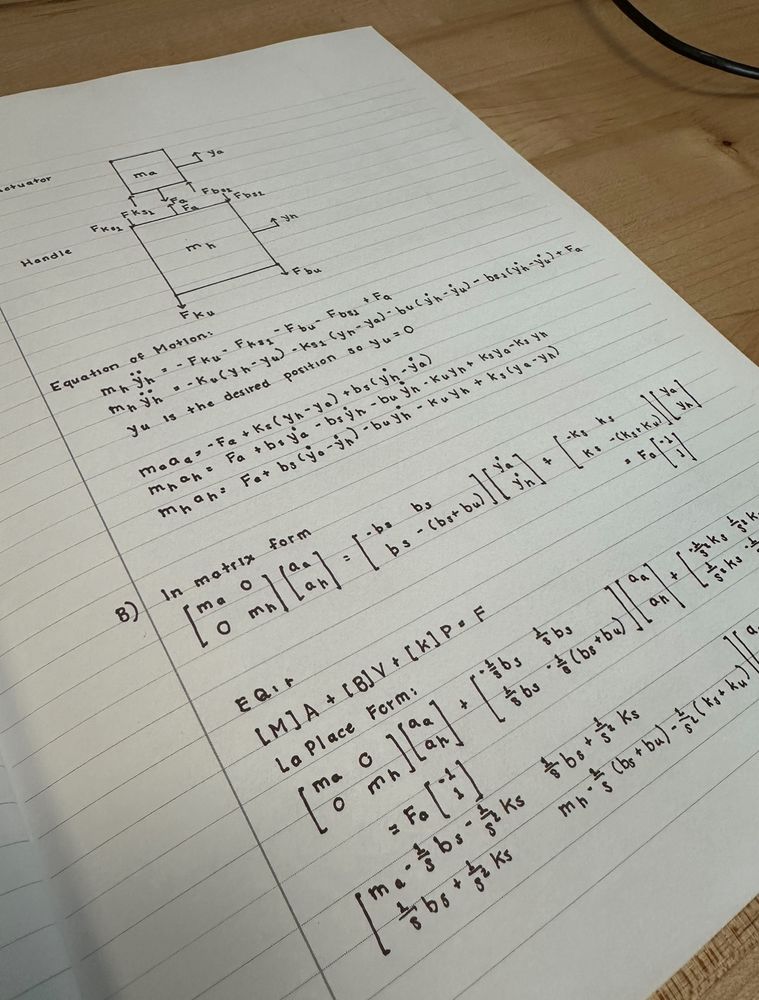 ya
ma
Fks1 Fa Fbs2
Fks2 Fa Fbs2
Handle
mh
yh
Fku
Fbu
Equation of Motion:
mhÿh = -Fku - Fks2 - Fbu - Fbs2 + Fa
mhÿh = -ku(yh-yu) - ks2(yh-ya) - bu(ẏh-ẏu) - bs2(ẏh-ẏu) + Fa
yu is the desired position so yu=0
maaa = -Fa + ks(yh-ya) + bs(ẏh-ẏa)
mhah = Fa + bsẏa - bsẏh - buẏh - kuyh + ksya - ksyh
mhah = Fa + bs(ẏa-ẏh) - buẏh - kuyh + ks(ya-yh)
B) In matrix form
[ma 0; 0 mh][aa; ah] = [-bs bs; bs -(bs+bu)][ẏa; ẏh] + [-ks ks; ks -(ks+ku)][ya; yh]
= Fa[-1; 1]
EQ:
[M]A + [B]V + [K]P = F
La Place Form:
[ma 0; 0 mh][aa; ah] + [-1/s bs 1/s bs; 1/s bs -1/s(bs+bu)][aa; ah] + [-1/s² ks 1/s² ks; 1/s² ks -
= Fa[-1; 1]
[ma - 1/s bs - 1/s² ks 1/s bs + 1/s² ks
1/s bs + 1/s² ks mh - 1/s(bs+bu) - 1/s²(ks+ku)][a